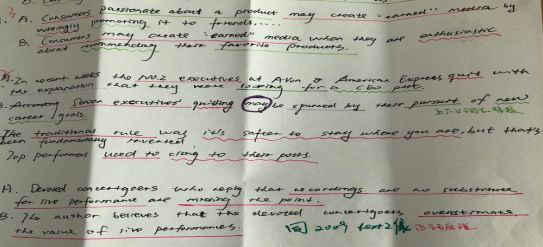 1. A. Consumers passionate about a product may create "earned" media by
willingly promoting it to friends.....
B. Consumers may create "earned" media when they are enthusiastic
about recommending their favorite products.
A. In recent weeks the No.2 executives at Avon & American Express quit with
the explanation that they were looking for a CEO post.
B. Senior executives' quitting may be spurred by their pursuit of new
career goals.
The traditional rule was it's safer to stay where you are, but that's
been fundamentally inverted.
Top performers used to cling to their posts.
A. Devoted concertgoers who reply that recordings are no substitute
for live performance are missing the point.
B. The author believes that the devoted concertgoers overestimate
the value of live performances. 同 2009 text2 正话反说